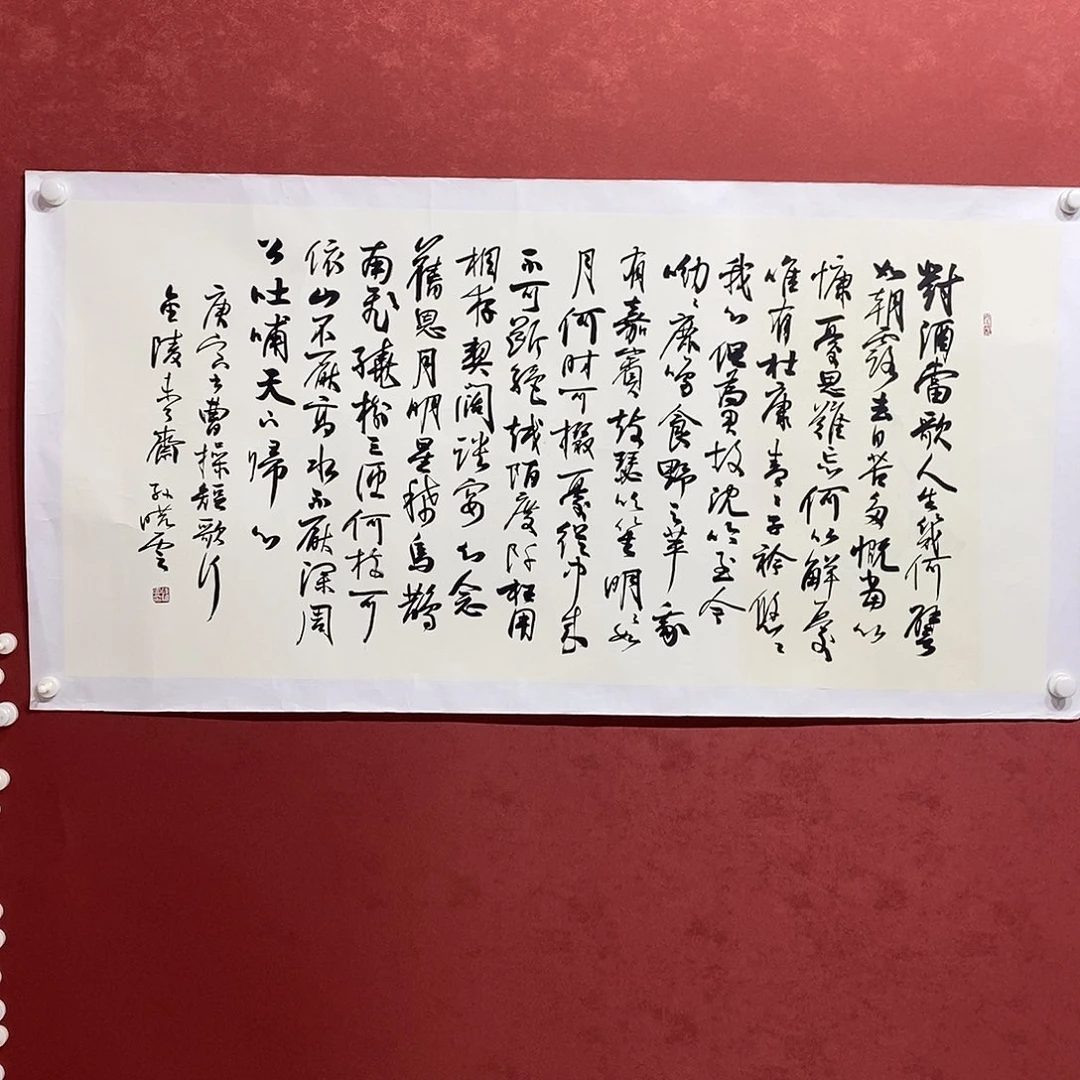 對酒當歌人生幾何譬
如朝露去日苦多慨當以
慷憂思難忘何以解憂
唯有杜康青〻子衿悠〻
我心但為君故沈吟至今
呦〻鹿鳴食野之苹我
有嘉賓鼓瑟吹笙明〻如
月何時可掇憂從中來
不可斷絕越陌度阡枉用
相存契闊談宴心念
舊恩月明星稀烏鵲
南飛繞樹三匝何枝可
依山不厭高水不厭深周
公吐哺天下歸心
庚寅書曹操短歌行
金陵齋孫曉雲